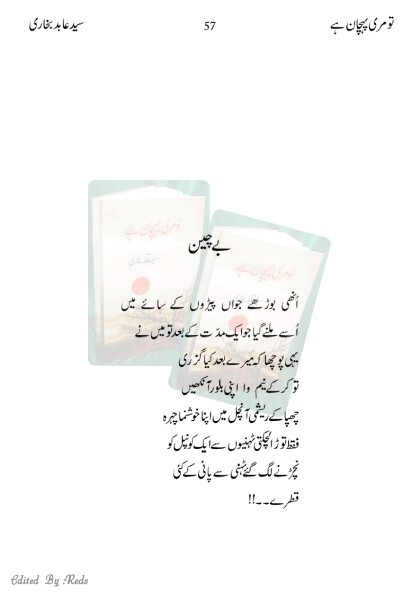 تو مری پہچان ہے 57 سید عابد بخاری
تو مری پہچان ہے
تو مری پہچان ہے
بے چین
اُنھی بوڑھے جواں پیڑوں کے سائے میں
اُسے ملنے گیا جو ایک مدّت کے بعد تو میں نے
یہی پوچھا کہ میرے بعد کیا گزری
تو کر کے نیم وا اپنی بلور آنکھیں
چھپا کے ریشمی آنچل میں اپنا خوشنما چہرہ
فقط توڑا لچکتی ٹہنیوں سے ایک کونپل کو
نچڑنے لگ گئے ٹہنی سے پانی کے کئی
قطرے۔۔!!
Edited By Reds